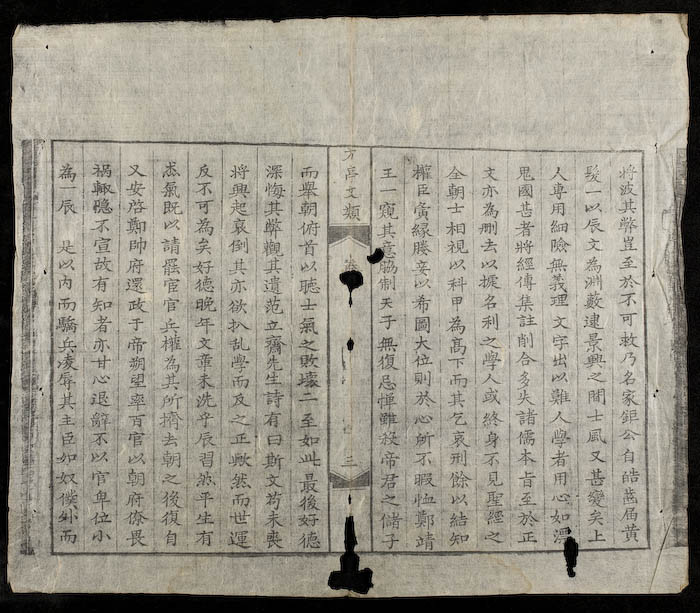 將波其弊豈至於不可救乃名家鉅公自皓齒届黄
髮一以辰文為淵藪逮景興之間士風又甚變矣上
人專用細險無義理文字出以難人學者用心如漂
鬼國甚者將經傳集註削合多失諸儒本旨至於正
文亦為刪去以捷名利之學人或終身不見聖經之
全朝士相視以科甲為髙下而其乞哀刑餘以結知
權臣夤緣媵妾以希圖大位則於心所不暇恤鄭靖
王一窺其意脇制天子無復忌憚雖殺帝君之儲子
方亭文類
卷
三
而舉朝俯首以聽士氣之敗壞一至如此最後好德
深悔其弊觀其遺范立齋先生詩有曰斯文苟未喪
將興起衰倒其亦欲扒乱學而及之正歟然而世運
反不可為矣好德晚年文章未洗乎辰習然平生有
志氣既以請罷宦官兵權為其所擠去朝之後復自
又安啓鄭帥府還政于帝朔望率百官以朝府僚畏
禍輙隱不宣故有知者亦甘心退辭不以官卑位小
為一辰 是以内而驕兵凌辱其主臣如奴僕外而